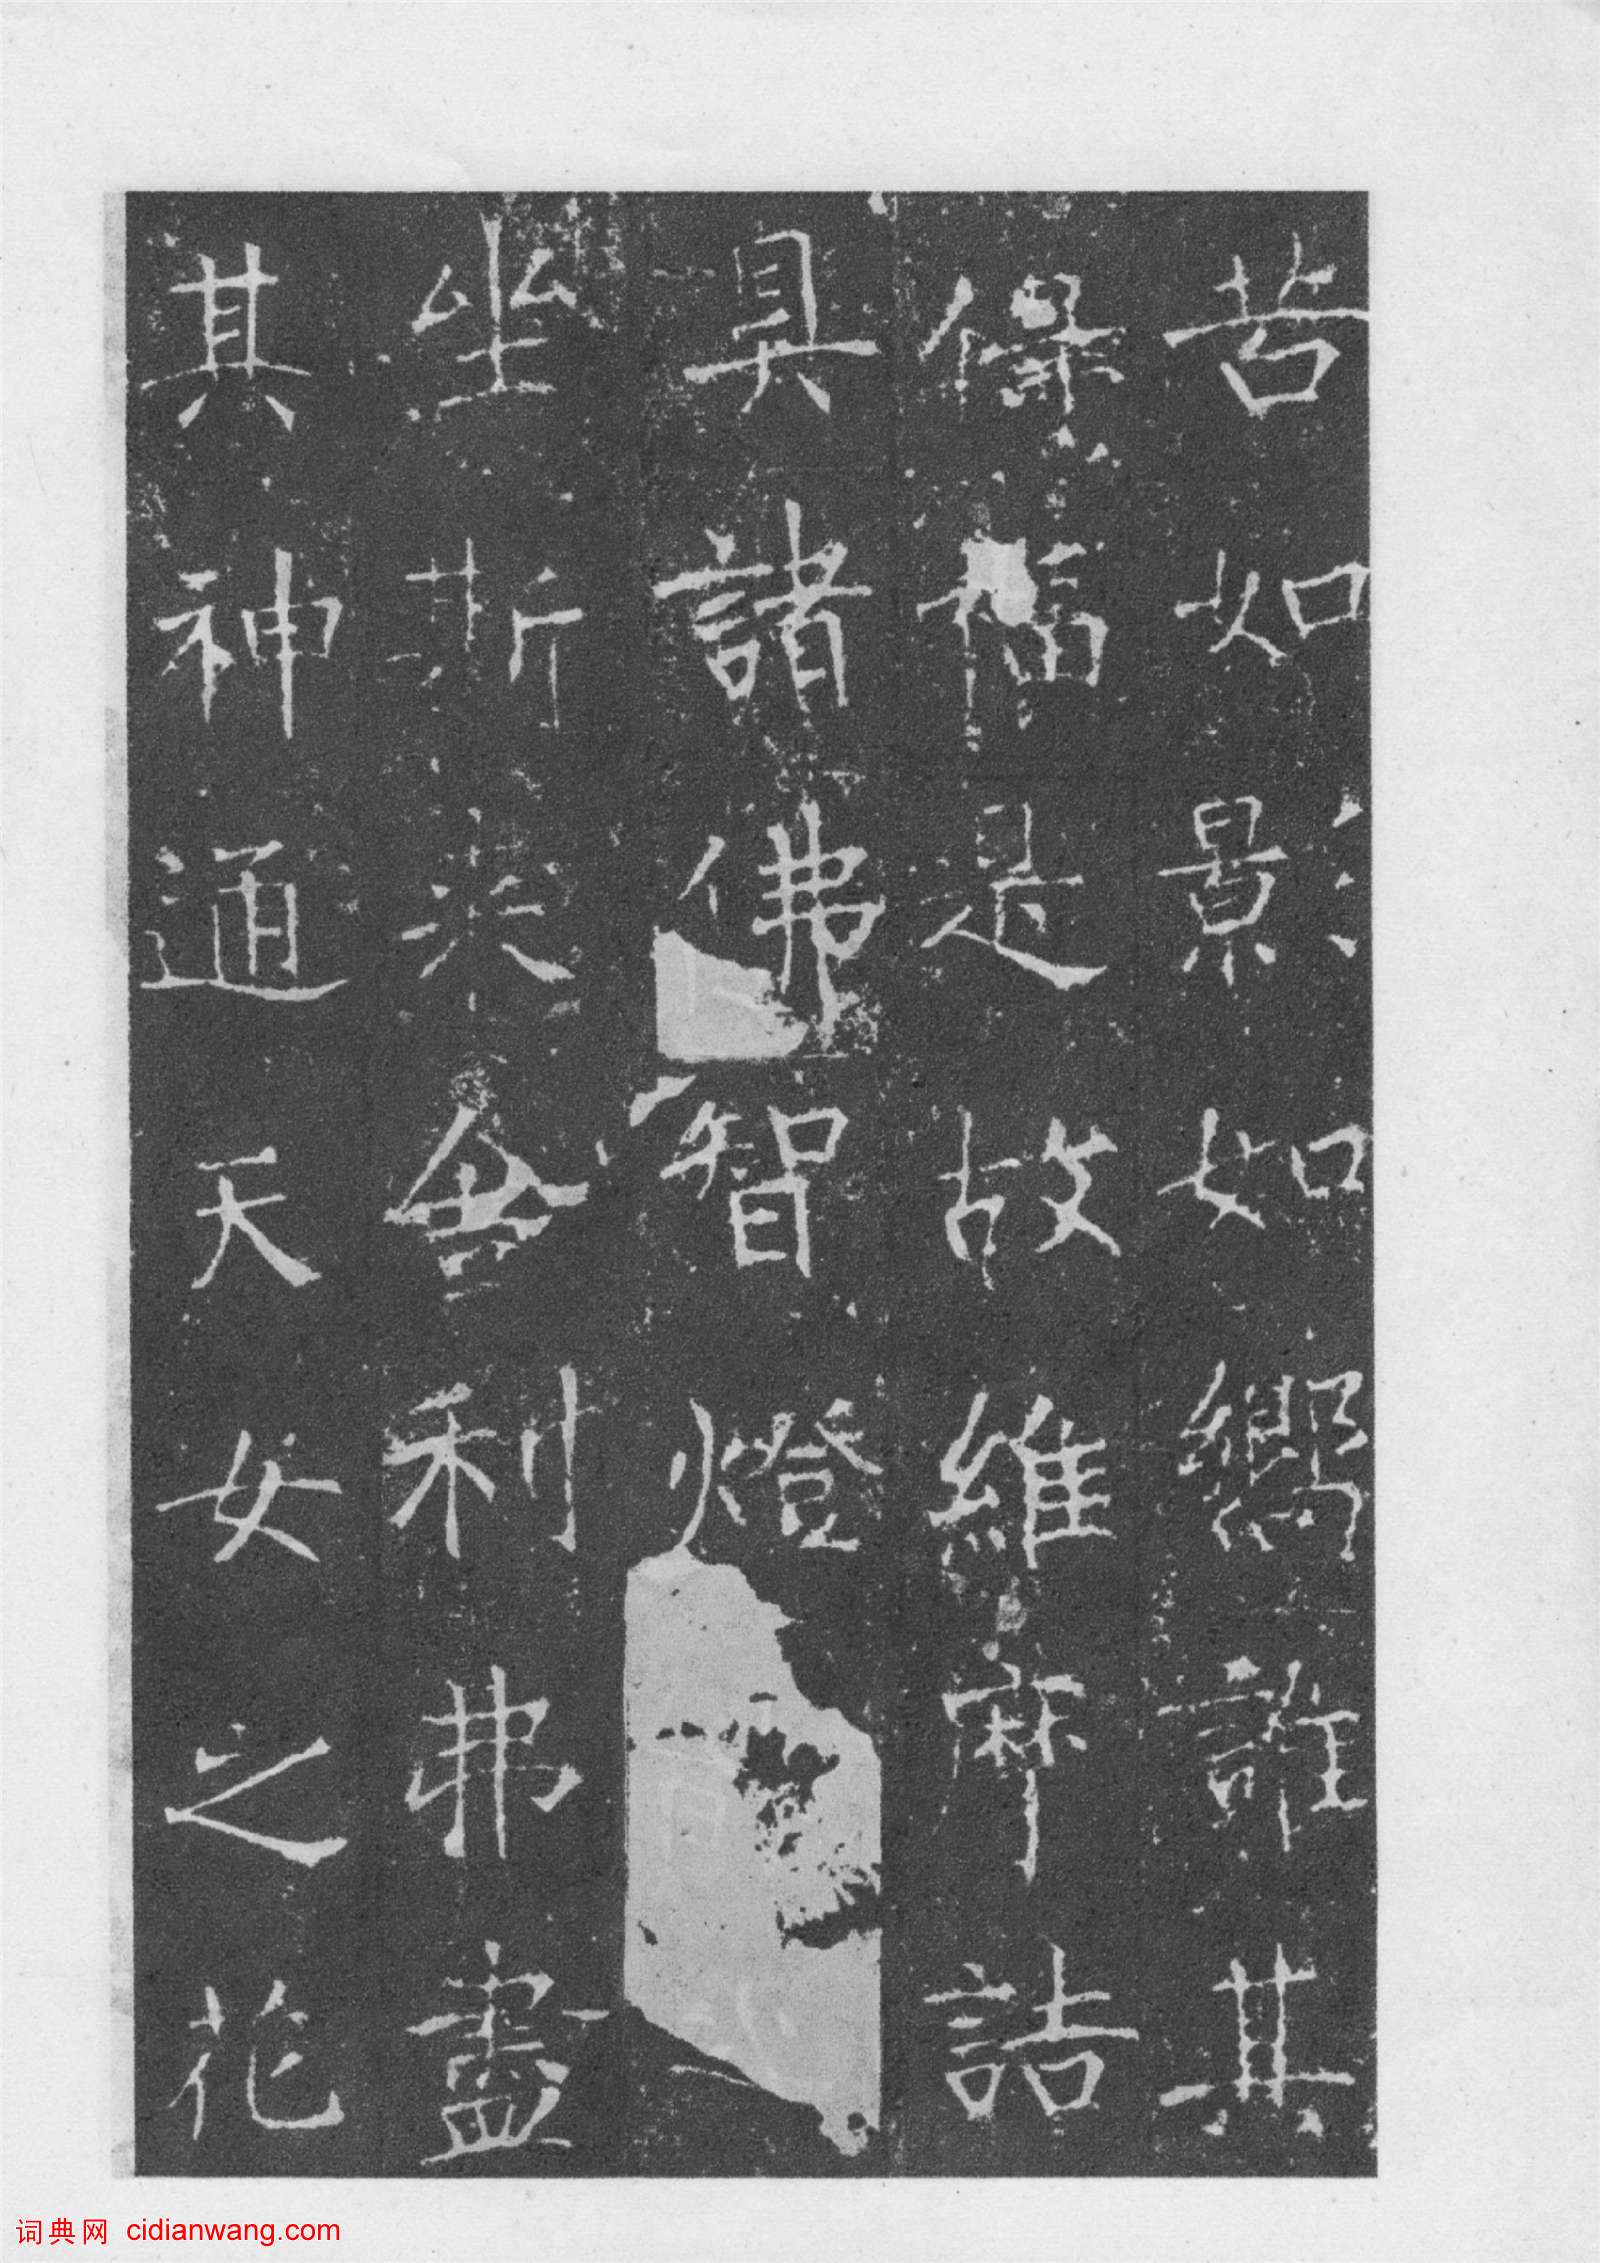 苦如景如嚮誰其
保福是故維摩詰
具諸佛智燈
坐斯来舍利弗盡
其神通天女之花
词典网 cidianwang.com